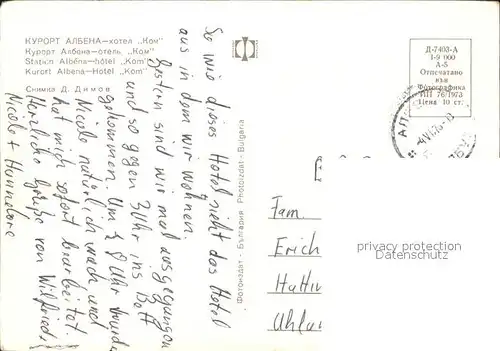 КУРОРТ АЛБЕНА-хотел „Ком"
Курорт Албена-отель „Ком"
Station Albéna-hôtel „Kom"
Kurort Albena-Hotel „Kom"
Снимка Д. Димов
So wie dieses Hotel sieht das Hotel
aus in dem wir wohnen.
Gestern sind wir mal ausgegangen
und so gegen 3 Uhr ins Bett
gekommen. Um 8 Uhr wurde
Nicole natürlich wach und
hat mich sofort bearbeitet.
Herzliche Grüße von Wilfried
Nicole + Hannelore
Фотоиздат - България Photoizdat - Bulgaria
Д-7403-А
1-9 000
А-5
Отпечатано
във
Фотографика
ИП 76/1973
Цена 10 ст.
Fam.
Erich
privacy protection
Datenschutz